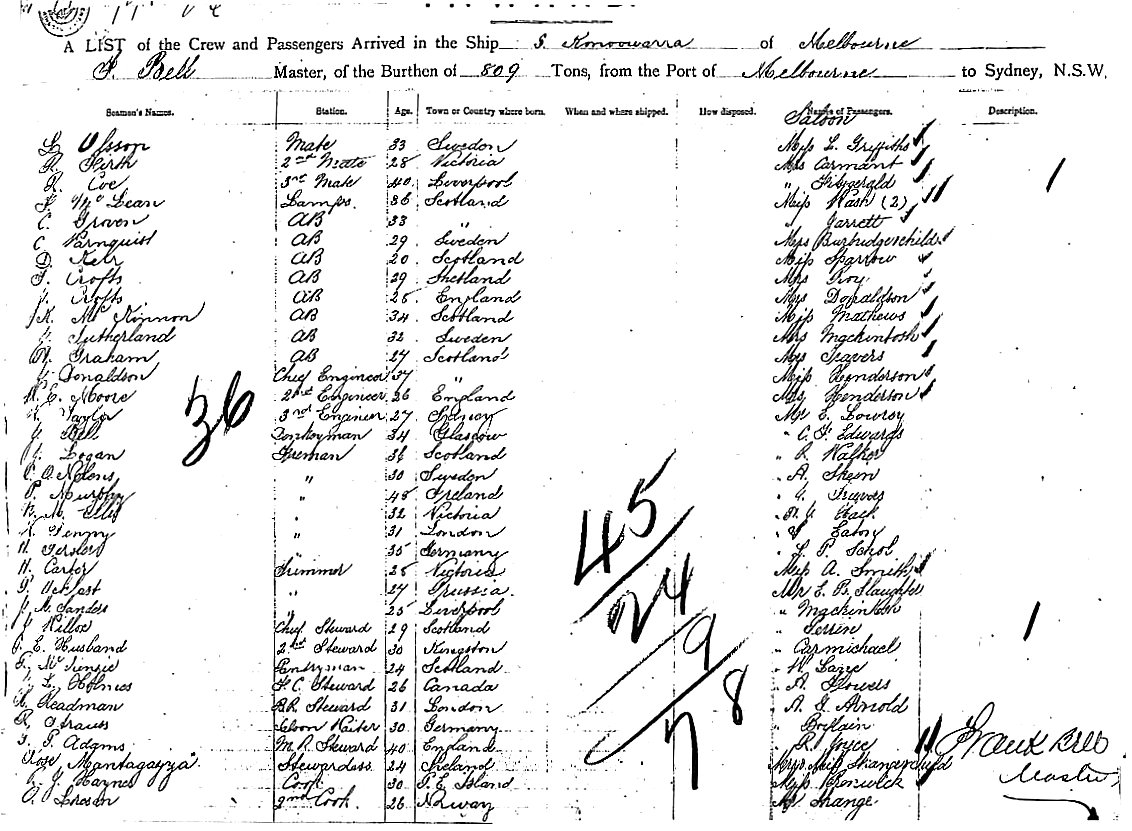 A LIST of the Crew and Passengers Arrived in the Ship S. Konoowarra of Melbourne
F. Bell Master, of the Burthen of 809 Tons, from the Port of Melbourne to Sydney, N.S.W.
Seamen's Names. Station. Age. Town or Country where born. When and where shipped. How disposed. Names of Passengers. Description.
Saloon
Olsson Mate 33 Sweden Miss L. Griffiths
R. Firth 2nd Mate 28 Victoria Mrs Carmant
R. Coe 3rd Mate 40 Liverpool " Fitzgerald
Lean Lamps. 36 Scotland Miss Wash (2)
C. Groven AB 33 " " Garrett
C. AB 29 Sweden Mrs
D. Keir AB 20 Scotland Miss Sparrow
F. Crofts AB 29 Shetland Mrs
J. Crofts AB 25 England Mrs Donaldson
K. McKinnon AB 34 Scotland Miss Mathews
J. Sutherland AB 32 Sweden Mrs Mackintosh
Graham AB 27 Scotland Mrs Travers
J. Donaldson Chief Engineer 37 " Miss Henderson
W. E. Moore 2nd Engineer 26 England Mrs Henderson
Taylor 3rd Engineer 27 Sydney Mr E. Lowrey
J. Bell Donkeyman 34 Glasgow " C. F. Edwards
J. Logan Fireman 36 Scotland " R. Walker
C. A. " 30 Sweden " A. Skein
P. Murphy " 48 Ireland " J. Travers
M. Ellis " 32 Victoria "
" 31 London " Eaton
H. 35 Germany " P. Schol
H. Carter Trimmer 25 Victoria Miss A. Smith
" 27 Prussia Mr E. B. Slaughter
J. M. Sanders " 25 Liverpool " Mackintosh
J. Willox Chief Steward 29 Scotland " Perrin
E. Husband 2nd Steward 30 Kingston " Carmichael
McKenzie Pantryman 24 Scotland " W. Lane
L. Holmes F. C. Steward 26 Canada " A. Flowers
Headman B.R. Steward 31 London " A. J. Arnold
R. Strauss Saloon Waiter 30 Germany "
P. Adams M. R. Steward 40 England " R. Joyce
Rose Mantagayya Stewardess 24 Ireland
J. Haynes Cook 30 P. E. Island Miss Berwick
O. Larsen 2nd Cook 26 Norway Mr Shange
36
45
24
9
78
Frank Bell
Master